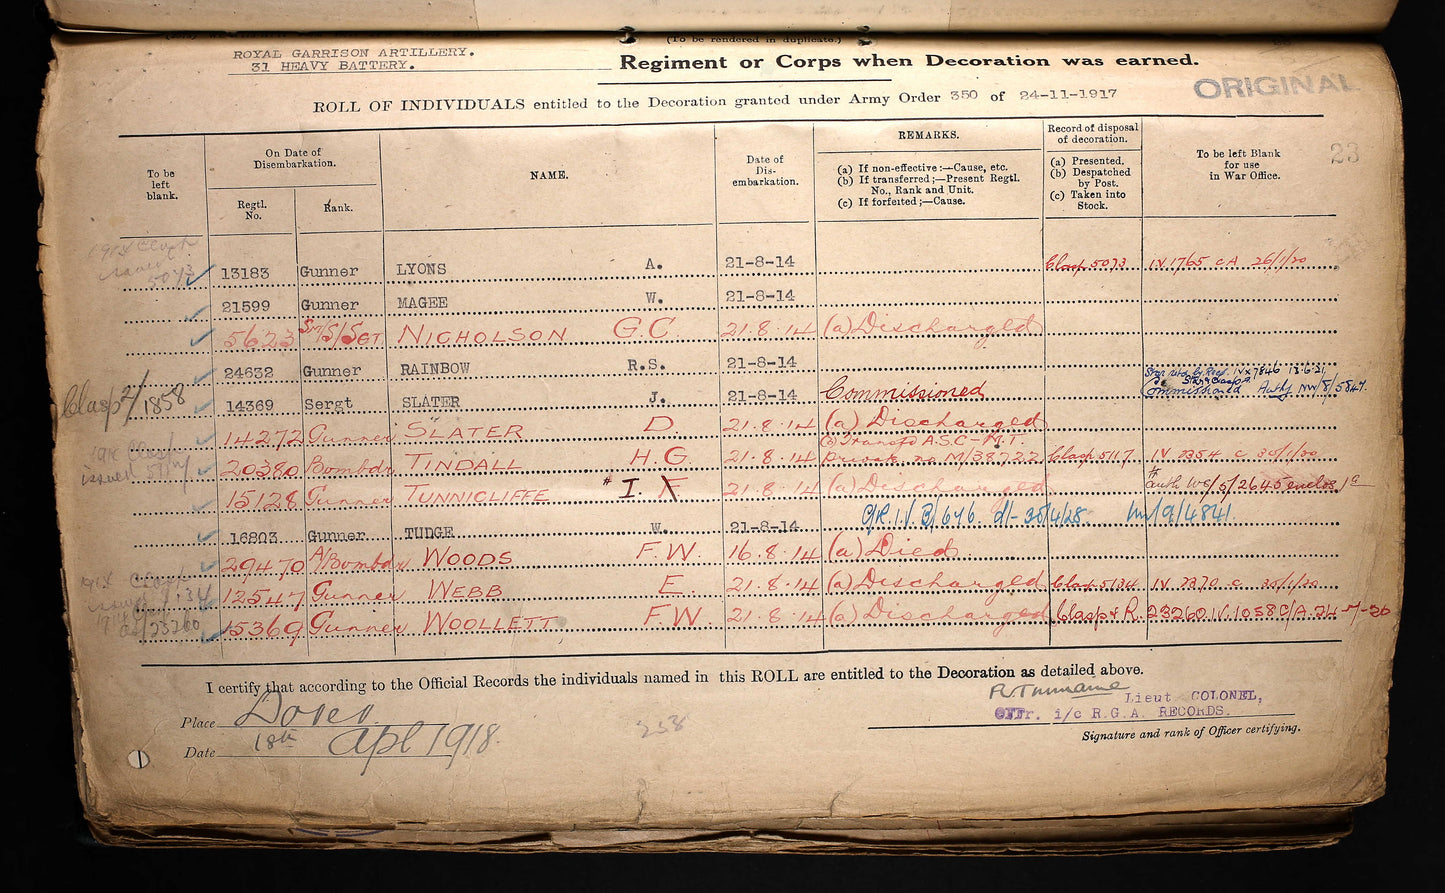 (To be rendered in duplicate.)
ROYAL GARRISON ARTILLERY.
31 HEAVY BATTERY.
Regiment or Corps when Decoration was earned.
ORIGINAL
ROLL OF INDIVIDUALS entitled to the Decoration granted under Army Order 350 of 24-11-1917
23
To be left blank.
On Date of Disembarkation.
Regtl. No.
Rank.
NAME.
Date of Dis-embarkation.
REMARKS.
(a) If non-effective:—Cause, etc.
(b) If transferred;—Present Regtl. No., Rank and Unit.
(c) If forfeited;—Cause.
Record of disposal of decoration.
(a) Presented.
(b) Despatched by Post.
(c) Taken into Stock.
To be left Blank for use in War Office.
1914 Clasp issued 5073
13183 Gunner LYONS A. 21-8-14 Clasp 5073 IV 1765 CA 26/1/20
21599 Gunner MAGEE W. 21-8-14
5623 S/Sgt NICHOLSON G.C. 21.8.14 (a) Discharged
24632 Gunner RAINBOW R.S. 21-8-14
Clasp 2/1858
14369 Sergt SLATER J. 21-8-14 Commissioned Star & Clasp Commissioned Auth NW/8/5847.
14272 Gunner SLATER D. 21.8.14 (a) Discharged
(b) Transfd A.S.C-M.T.
1914 Clasp issued 5117
20380 Bombdr TINDALL H.G. 21.8.14 Private no M/38722 Clasp 5117 IV 2354 C 30/1/20
15128 Gunner TUNNICLIFFE # I. F 21.8.14 (a) Discharged # auth WG/5/2645 enclos 1a
16803 Gunner TUDGE W. 21-8-14
29470 A/Bombdr WOODS F.W. 16.8.14 (a) Died
1914 Clasp issued 5134
12547 Gunner WEBB E. 21.8.14 (a) Discharged Clasp 5134 IV 2370 C 30/1/20
23260
15369 Gunner WOOLLETT F.W. 21.8.14 (a) Discharged Clasp & R. 23260 IV.1058 C/A.
I certify that according to the Official Records the individuals named in this ROLL are entitled to the Decoration as detailed above.
Lieut COLONEL,
Place Dover
Offr. i/c R.G.A. RECORDS.
Date 18th Apl 1918.
258
Signature and rank of Officer certifying.